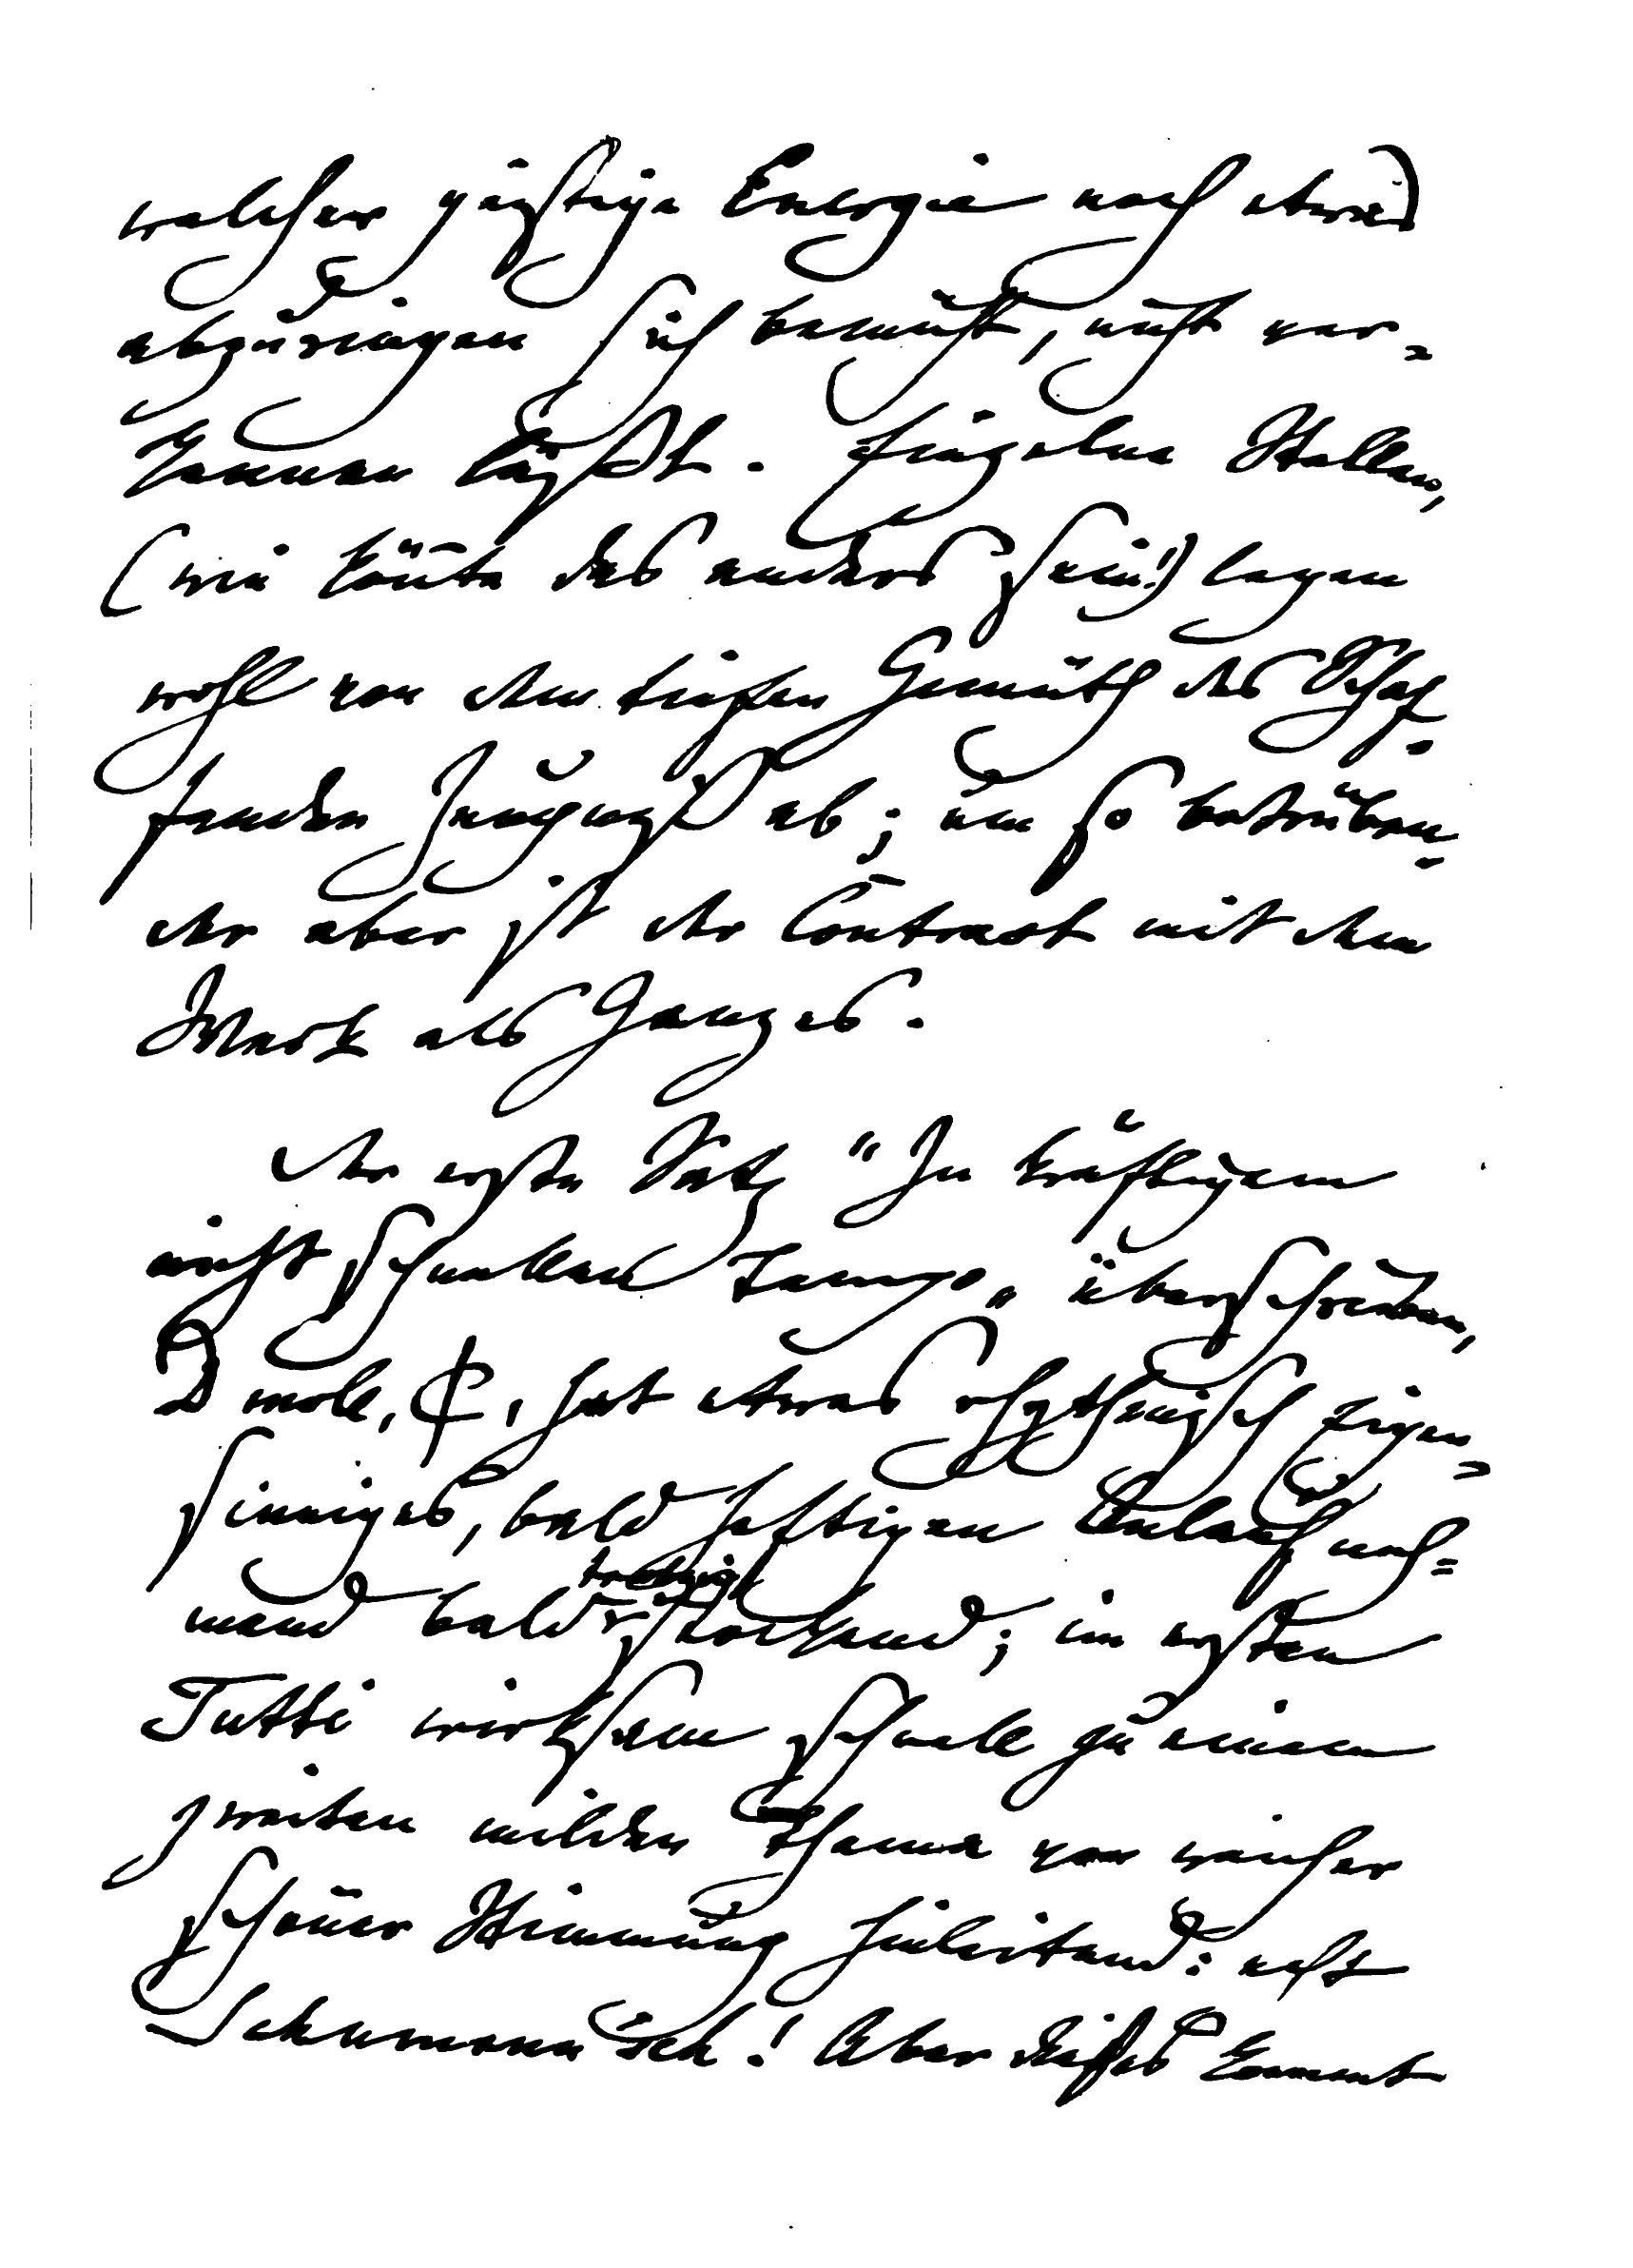 welcher geistige Energie noch etwas
abzuringen sich bemüht, nicht ver=
kennen läßt. Einzelne Stellen,
(wie kön̄te das anders sein!) legen
wohl von dem tiefen Gemüth des Schaf=
fenden Zeugniß ab; um so betrüben=
der aber ist der Contrast mit dem
Werk als Ganzes.
Der erste Satz "In kräftigem
nicht schnellem Tempo" überschrieben,
D moll, ₵, hat etwas rhythmisch Eigen=
sinniges, bald heftigen Anlauf neh=
mend bald trotzig stockend; im ersten
Tutti wirksam schnell zu einem
zweiten milden Thema von weicher
schöner Stimmung hinleitend: echt
Schumann'isch! Aber dieses kommt